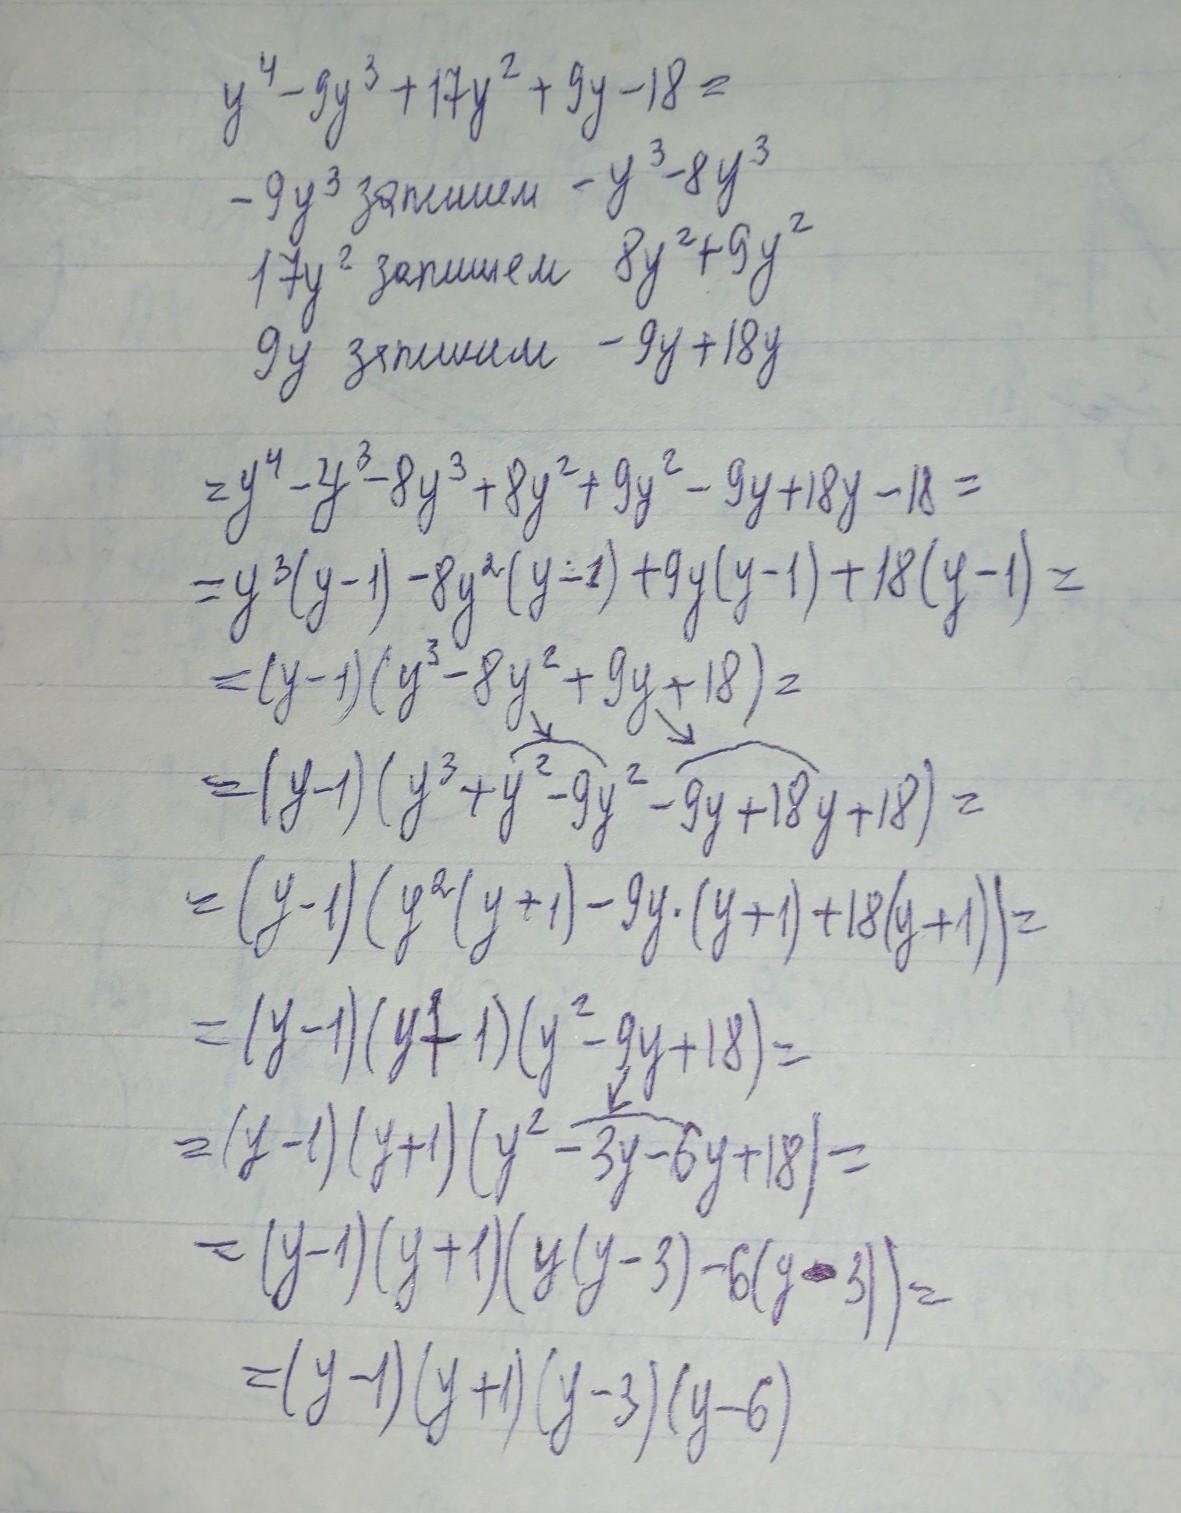 y⁴ - 9y³ + 17y² + 9y - 18 =
- 9y³ запишем - y³ - 8y³
17y² запишем 8y² + 9y²
9y запишем - 9y + 18y
= y⁴ - y³ - 8y³ + 8y² + 9y² - 9y + 18y - 18 =
= y³(y - 1) - 8y²(y - 1) + 9y(y - 1) + 18(y - 1) =
= (y - 1)(y³ - 8y² + 9y + 18) =
= (y - 1)(y³ + y² - 9y² - 9y + 18y + 18) =
= (y - 1)(y²(y + 1) - 9y·(y + 1) + 18(y + 1)) =
= (y - 1)(y + 1)(y² - 9y + 18) =
= (y - 1)(y + 1)(y² - 3y - 6y + 18) =
= (y - 1)(y + 1)(y(y - 3) - 6(y - 3)) =
= (y - 1)(y + 1)(y - 3)(y - 6)